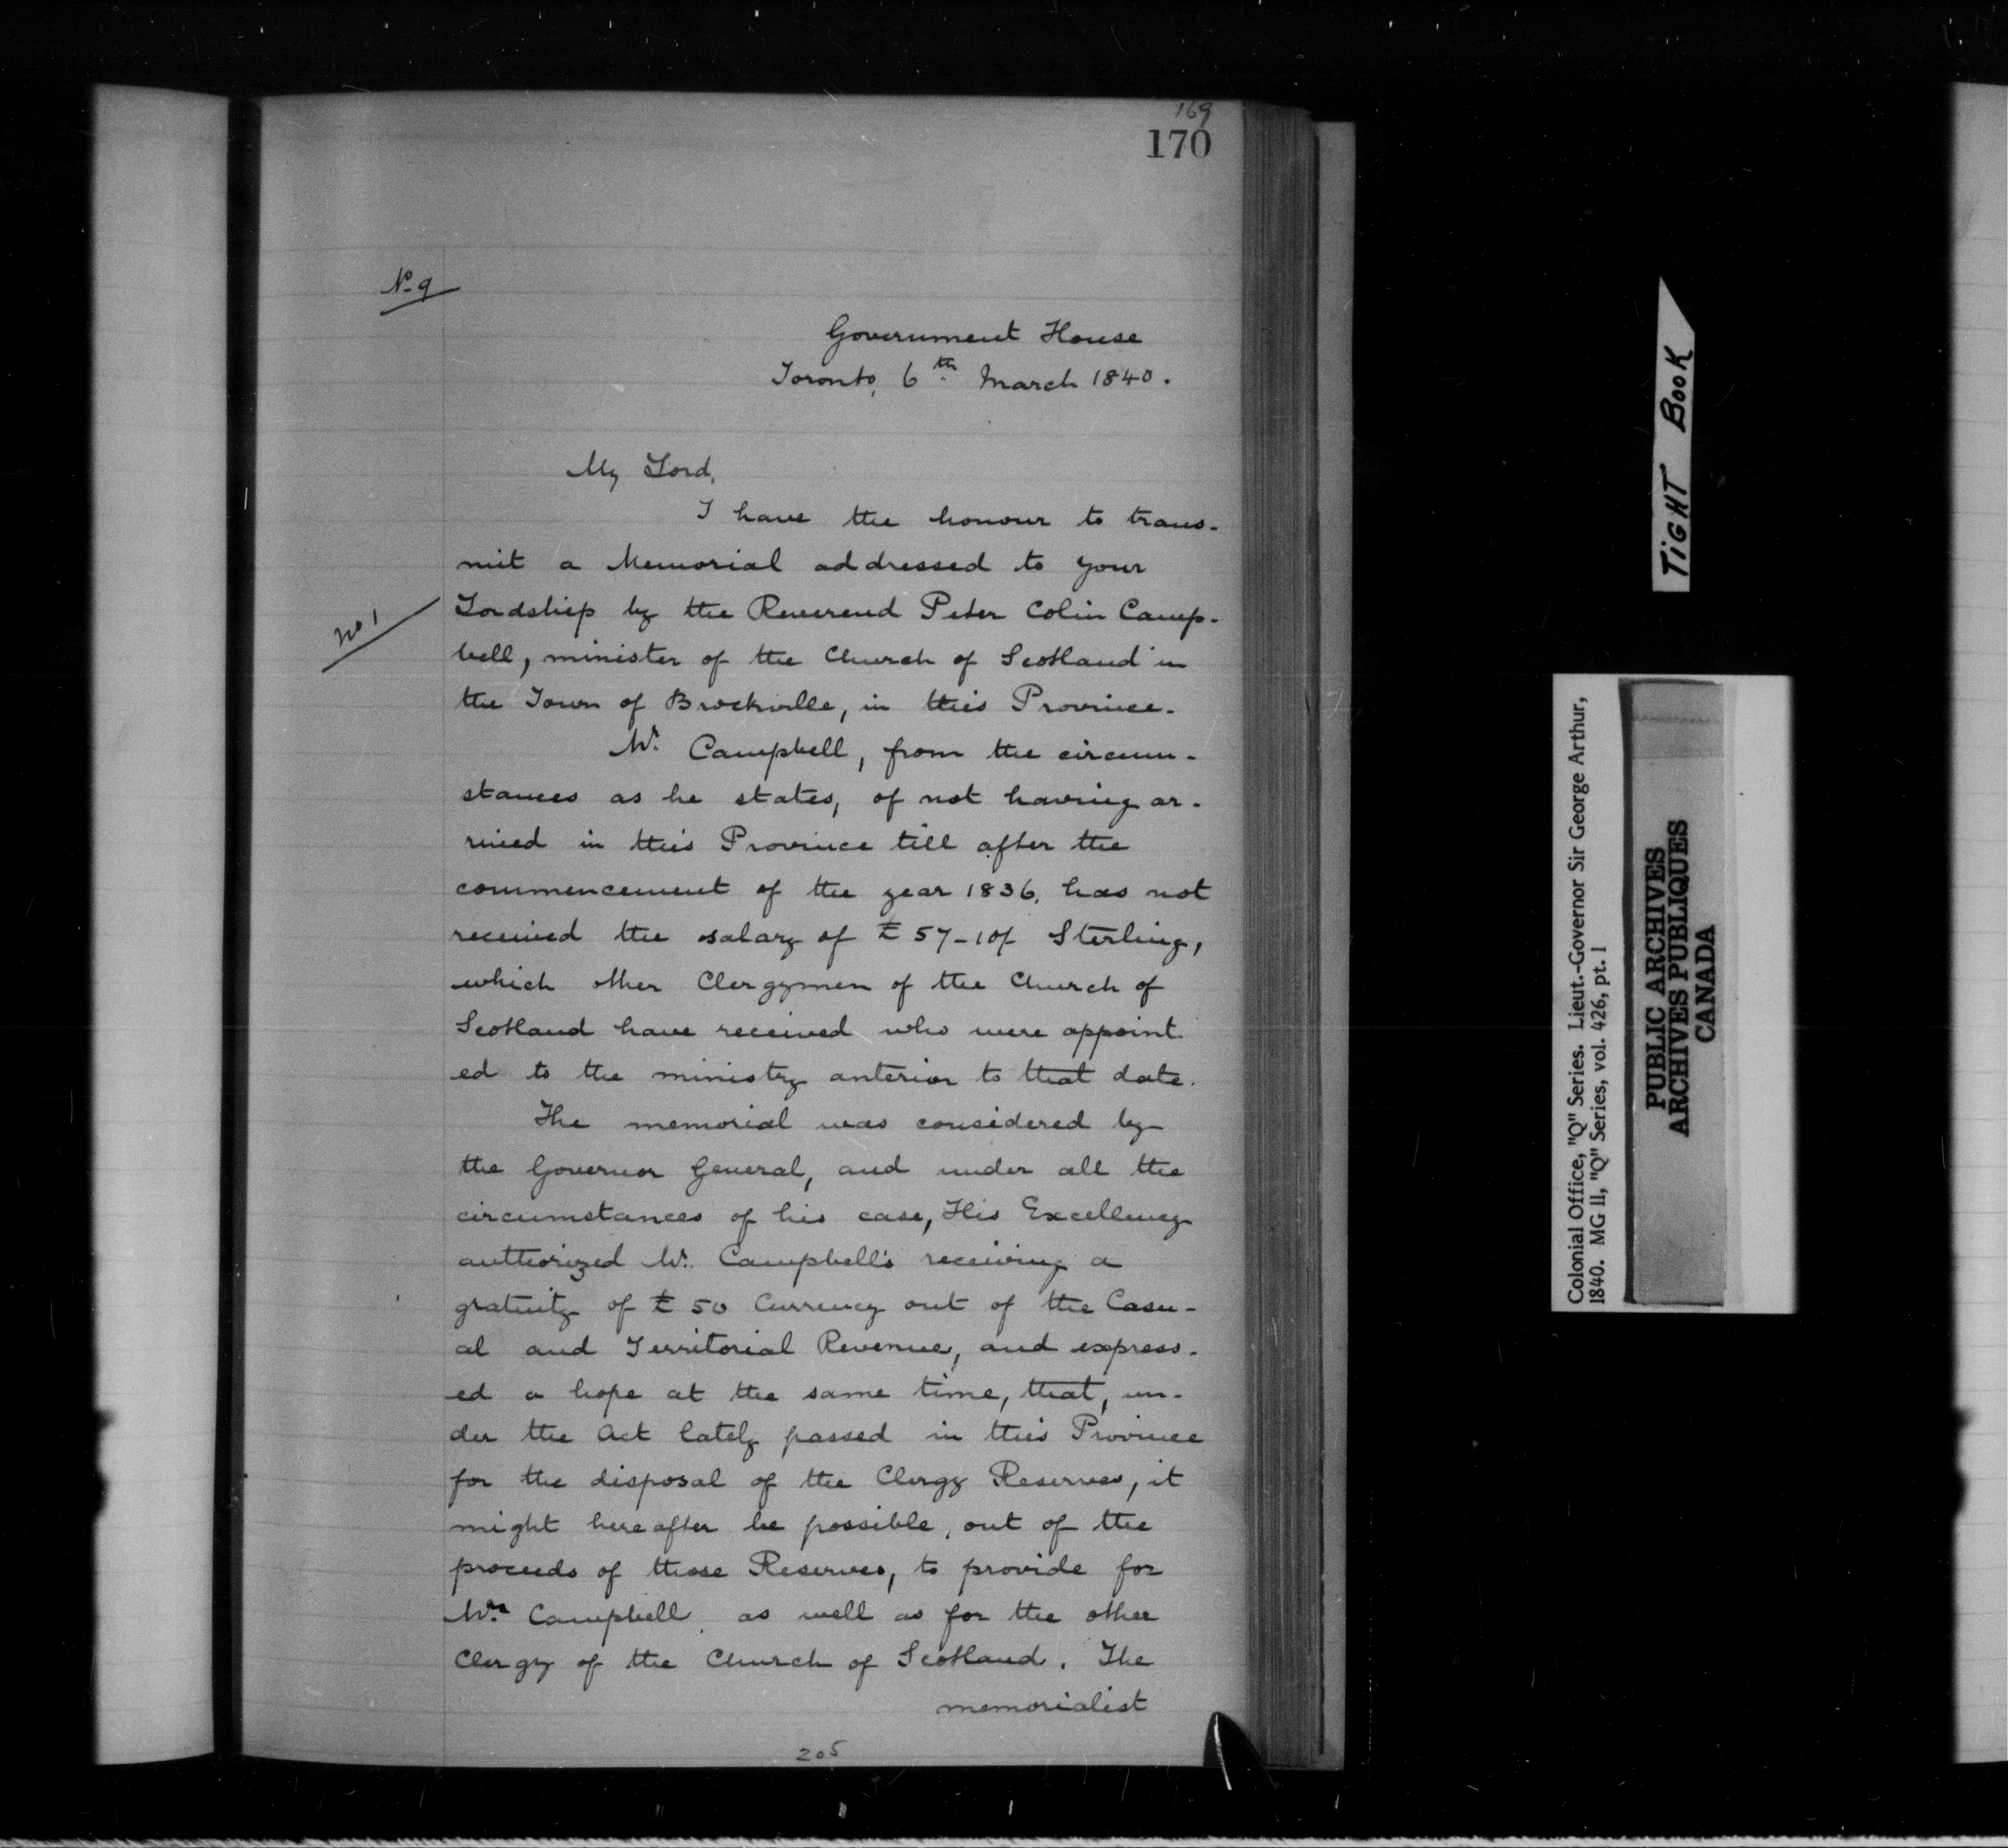 169
170
No. 9
Government House
Toronto, 6th March 1840.
My Lord,
I have the honour to trans-
mit a Memorial addressed to your
No 1
Lordship by the Reverend Peter Colin Camp-
bell, minister of the Church of Scotland in
the Town of Brockville, in this Province.
Mr. Campbell, from the circum-
stances as he states, of not having ar-
rived in this Province till after the
commencement of the year 1836, has not
received the salary of £57-10/ Sterling,
which other Clergymen of the Church of
Scotland have received who were appoint
ed to the ministry anterior to that date.
The memorial was considered by
the Governor General, and under all the
circumstances of his case, His Excellency
authorized Mr. Campbell's receiving a
gratuity of £50 Currency out of the Casu-
al and Territorial Revenue, and express-
ed a hope at the same time, that, un-
der the Act lately passed in this Province
for the disposal of the Clergy Reserves, it
might hereafter be possible, out of the
proceeds of those Reserves, to provide for
Mr. Campbell, as well as for the other
Clergy of the Church of Scotland. The
memorialist
205
TIGHT BOOK
Colonial Office, "Q" Series. Lieut.-Governor Sir George Arthur,
1840. MG 11, "Q" Series, vol. 426, pt. 1
PUBLIC ARCHIVES
ARCHIVES PUBLIQUES
CANADA